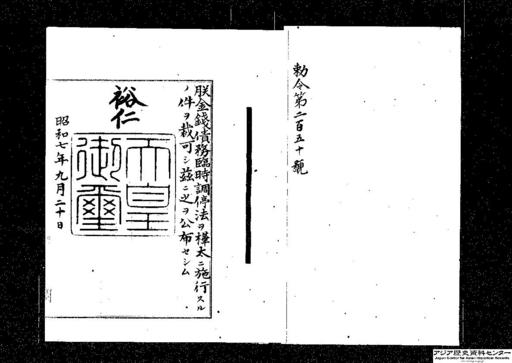 勅令第二百五十號
朕金錢債務臨時調停法ヲ樺太ニ施行スル
ノ件ヲ裁可シ茲ニ之ヲ公布セシム
裕仁
天皇御璽
昭和七年九月二十日
アジア歴史資料センター
Japan Center for Asian Historical Records